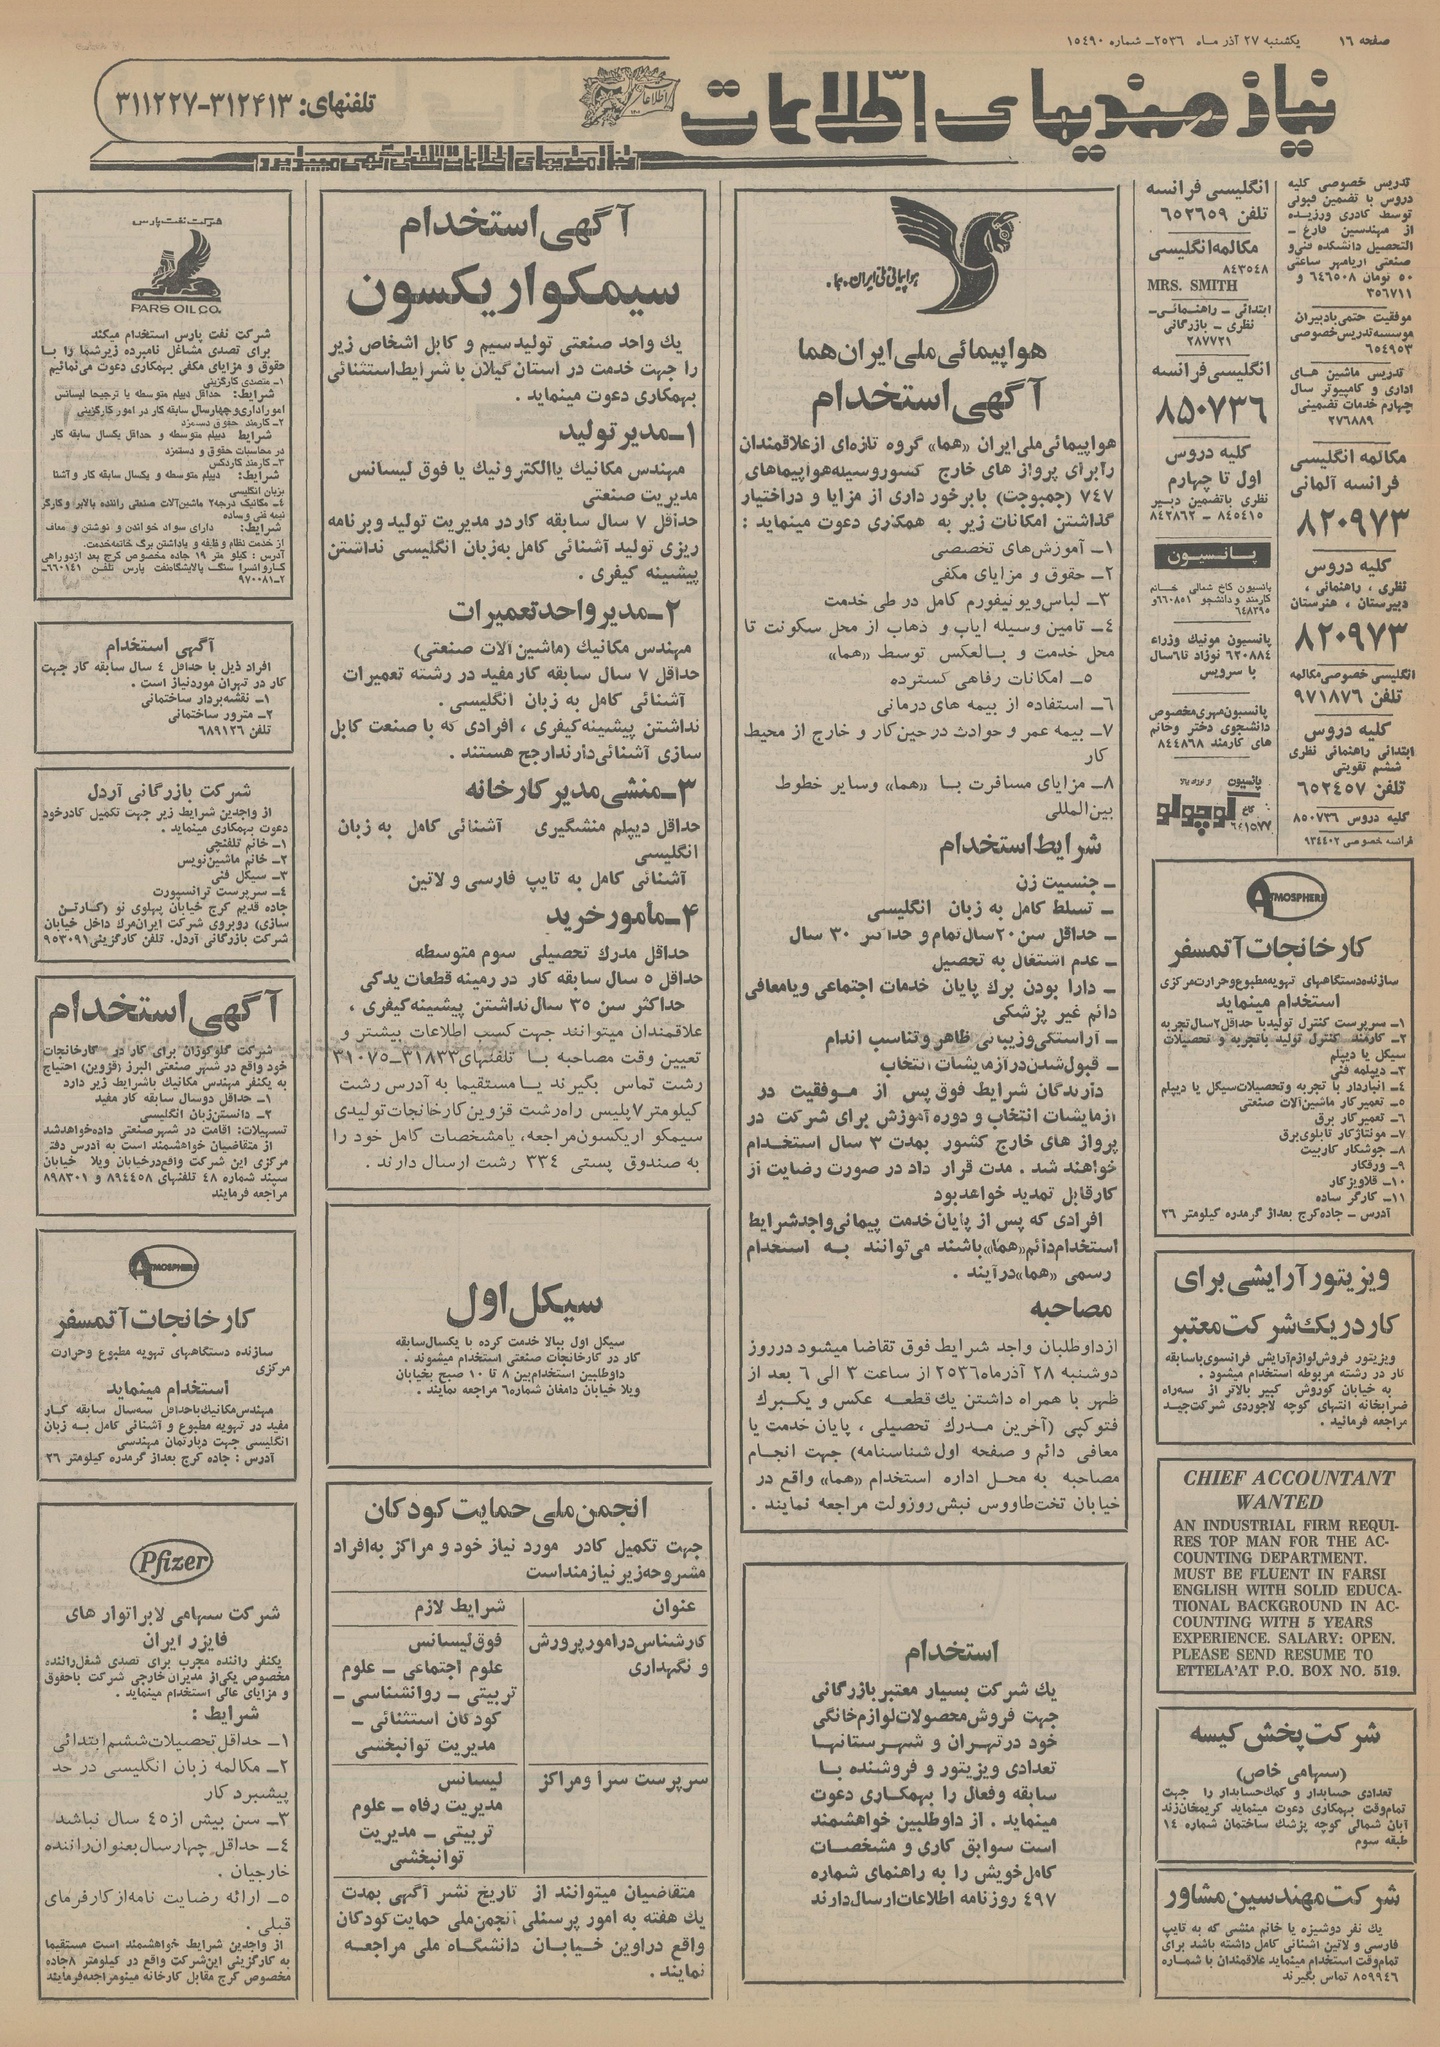 صفحه ۱۶
یکشنبه ۲۷ آذر ماه ۲۵۳۶ـ شماره ۱۵۴۹۰
نیازمندیهای اطلاعات
تلفنهای: ۳۱۲۴۱۳-۳۱۱۲۲۷
نیازمندیهای اطلاعات تلفنی آگهی میپذیرد
تدریس خصوصی کلیه
دروس با تضمین قبولی
توسط کادری ورزیده
از مهندسین فارغ ـ
التحصیل دانشکده فنی و
صنعتی آریامهر ساعتی
۵۰ تومان ۶۴۶۵۰۸ و
۳۵۶۷۱۱
موفقیت حتمی بادبیران
موسسه تدریس خصوصی
۶۵۴۹۵۳
تدریس ماشین های
اداری و کامپیوتر سال
چهارم خدمات تضمینی
۲۷۶۸۸۹
مکالمه انگلیسی
فرانسه آلمانی
۸۲۰۹۷۳
کلیه دروس
نظری ، راهنمائی ،
دبیرستان ، هنرستان
۸۲۰۹۷۳
انگلیسی خصوصی مکالمه
تلفن ۹۷۱۸۷۶
کلیه دروس
ابتدائی راهنمائی نظری
ششم تقویتی
تلفن ۶۵۲۴۵۷
کلیه دروس ۸۵۰۷۳۶
فرانسه خصوصی ۹۳۴۴۰۲
انگلیسی فرانسه
تلفن ۶۵۲۶۵۹
مکالمه انگلیسی
۸۴۳۵۴۸
MRS. SMITH
ابتدائی ـ راهنمائی ـ
نظری ـ بازرگانی
۲۸۷۷۲۱
انگلیسی فرانسه
۸۵۰۷۳۶
کلیه دروس
اول تا چهارم
نظری باتضمین دبیر
۸۴۵۴۱۵ ـ ۸۴۲۸۶۲
پانسیون
پانسیون کاخ شمالی خانم
کارمند و دانشجو ۶۶۰۸۵۱و
۶۴۸۳۹۵
پانسیون مونیک وزراء
۶۲۰۸۸۴ نوزاد تا ۶سال
با سرویس
پانسیون مهری مخصوص
دانشجوی دختر و خانم
های کارمند ۸۴۴۸۶۸
پانسیون
کاخ کوچولو
۶۴۱۵۷۷
ATMOSPHERE
کارخانجات آتمسفر
سازنده دستگاههای تهویه مطبوع وحرارت مرکزی
استخدام مینماید
۱ـ سرپرست کنترل تولید با حداقل ۲سال تجربه
۲ـ کارمند کنترل تولید باتجربه و تحصیلات
سیکل یا دیپلم
۳ـ دیپلمه فنی
۴ـ انباردار با تجربه و تحصیلات سیکل یا دیپلم
۵ـ تعمیرکار ماشین آلات صنعتی
۶ـ تعمیرکار برق
۷ـ مونتاژکار تابلوی برق
۸ـ جوشکار کاربیت
۹ـ ورقکار
۱۰ـ قلاویزکار
۱۱ـ کارگر ساده
آدرس ـ جاده کرج بعداز گرمدره کیلومتر ۲۶
ویزیتور آرایشی برای
کار در یک شرکت معتبر
ویزیتور فروش لوازم آرایش فرانسوی باسابقه
کار در رشته مربوطه استخدام میشود .
به خیابان کوروش کبیر بالاتر از سه راه
ضرابخانه انتهای کوچه لاجوردی شرکت جید
مراجعه فرمائید .
CHIEF ACCOUNTANT
WANTED
AN INDUSTRIAL FIRM REQUI-
RES TOP MAN FOR THE AC-
COUNTING DEPARTMENT.
MUST BE FLUENT IN FARSI
ENGLISH WITH SOLID EDUCA-
TIONAL BACKGROUND IN AC-
COUNTING WITH 5 YEARS
EXPERIENCE. SALARY: OPEN.
PLEASE SEND RESUME TO
ETTELA'AT P.O. BOX NO. 519.
شرکت پخش کیسه
(سهامی خاص)
تعدادی حسابدار و کمک حسابدار را جهت
تمام وقت بهمکاری دعوت مینماید کریمخان زند
آبان شمالی کوچه پزشك ساختمان شماره ۱۴
طبقه سوم
شرکت مهندسین مشاور
یك نفر دوشیزه یا خانم منشی که به تایپ
فارسی و لاتین آشنائی کامل داشته باشد برای
تمام وقت استخدام مینماید علاقمندان با شماره
۸۵۹۹۴۶ تماس بگیرند
هواپیمائی ملی ایران . هما .
هواپیمائی ملی ایران هما
آگهی استخدام
هواپیمائی ملی ایران «هما» گروه تازه‌ای از علاقمندان
را برای پرواز های خارج کشور وسیله هواپیماهای
۷۴۷ (جمبوجت) با برخورداری از مزایا و در اختیار
گذاشتن امکانات زیر به همکاری دعوت مینماید :
۱ـ آموزش‌های تخصصی
۲ـ حقوق و مزایای مکفی
۳ـ لباس و یونیفورم کامل در طی خدمت
۴ـ تامین وسیله ایاب و ذهاب از محل سکونت تا
محل خدمت و بالعکس توسط «هما»
۵ـ امکانات رفاهی گسترده
۶ـ استفاده از بیمه های درمانی
۷ـ بیمه عمر و حوادث در حین کار و خارج از محیط
کار
۸ـ مزایای مسافرت با «هما» وسایر خطوط
بین‌المللی
شرایط استخدام
ـ جنسیت زن
ـ تسلط کامل به زبان انگلیسی
ـ حداقل سن ۲۰سال تمام و حداکثر ۳۰ سال
ـ عدم اشتغال به تحصیل
ـ دارا بودن برك پایان خدمات اجتماعی و یا معافی
دائم غیر پزشکی
ـ آراستگی و زیبائی ظاهر و تناسب اندام
ـ قبول شدن در آزمایشات انتخاب
دارندگان شرایط فوق پس از موفقیت در
آزمایشات انتخاب و دوره آموزش برای شرکت در
پرواز های خارج کشور بمدت ۳ سال استخدام
خواهند شد . مدت قرار داد در صورت رضایت از
کار قابل تمدید خواهد بود
افرادی که پس از پایان خدمت پیمانی واجد شرایط
استخدام دائم «هما» باشند می‌توانند به استخدام
رسمی «هما» درآیند .
مصاحبه
از داوطلبان واجد شرایط فوق تقاضا میشود در روز
دوشنبه ۲۸ آذر ماه ۲۵۳۶ از ساعت ۳ الی ۶ بعد از
ظهر با همراه داشتن یك قطعه عکس و یکبرك
فتوکپی (آخرین مدرك تحصیلی ، پایان خدمت یا
معافی دائم و صفحه اول شناسنامه) جهت انجام
مصاحبه به محل اداره استخدام «هما» واقع در
خیابان تخت طاووس نبش روزولت مراجعه نمایند .
استخدام
یك شرکت بسیار معتبر بازرگانی
جهت فروش محصولات لوازم خانگی
خود در تهران و شهرستانها
تعدادی ویزیتور و فروشنده با
سابقه وفعال را بهمکاری دعوت
مینماید . از داوطلبین خواهشمند
است سوابق کاری و مشخصات
کامل خویش را به راهنمای شماره
۴۹۷ روزنامه اطلاعات ارسال دارند
آگهی استخدام
سیمکو اریکسون
یك واحد صنعتی تولید سیم و کابل اشخاص زیر
را جهت خدمت در استان گیلان با شرایط استثنائی
بهمکاری دعوت مینماید .
۱ـ مدیر تولید
مهندس مکانیك یا الکترونیك یا فوق لیسانس
مدیریت صنعتی
حداقل ۷ سال سابقه کار در مدیریت تولید و برنامه
ریزی تولید آشنائی کامل به زبان انگلیسی نداشتن
پیشینه کیفری .
۲ـ مدیر واحد تعمیرات
مهندس مکانیك (ماشین آلات صنعتی)
حداقل ۷ سال سابقه کار مفید در رشته تعمیرات
آشنائی کامل به زبان انگلیسی .
نداشتن پیشینه کیفری ، افرادی که با صنعت کابل
سازی آشنائی دارند ارجح هستند .
۳ـ منشی مدیر کارخانه
حداقل دیپلم منشیگری آشنائی کامل به زبان
انگلیسی
آشنائی کامل به تایپ فارسی و لاتین
۴ـ مامور خرید
حداقل مدرك تحصیلی سوم متوسطه
حداقل ۵ سال سابقه کار در زمینه قطعات یدکی
حداکثر سن ۳۵ سال نداشتن پیشینه کیفری ،
علاقمندان میتوانند جهت کسب اطلاعات بیشتر و
تعیین وقت مصاحبه با تلفنهای ۳۱۸۳۳ـ۳۱۰۷۵
رشت تماس بگیرند یا مستقیما به آدرس رشت
کیلومتر ۷ پلیس راه رشت قزوین کارخانجات تولیدی
سیمکو اریکسون مراجعه، یا مشخصات کامل خود را
به صندوق پستی ۳۳۴ رشت ارسال دارند .
سیکل اول
سیکل اول ببالا خدمت کرده با یکسال سابقه
کار در کارخانجات صنعتی استخدام میشوند .
داوطلبین استخدام بین ۸ تا ۱۰ صبح بخیابان
ویلا خیابان دامغان شماره ۶ مراجعه نمایند .
انجمن ملی حمایت کودکان
جهت تکمیل کادر مورد نیاز خود و مراکز به افراد
مشروحه زیر نیازمند است
عنوان
شرایط لازم
کارشناس در امور پرورش
و نگهداری
فوق لیسانس
علوم اجتماعی ـ علوم
تربیتی ـ روانشناسی ـ
کودکان استثنائی ـ
مدیریت توانبخشی
سرپرست سرا و مراکز
لیسانس
مدیریت رفاه ـ علوم
تربیتی ـ مدیریت
توانبخشی
متقاضیان میتوانند از تاریخ نشر آگهی بمدت
یك هفته به امور پرسنلی انجمن ملی حمایت کودکان
واقع در اوین خیابان دانشگاه ملی مراجعه
نمایند .
شرکت نفت پارس
PARS OIL CO.
شرکت نفت پارس استخدام میکند
برای تصدی مشاغل نامبرده زیر شما را با
حقوق و مزایای مکفی بهمکاری دعوت می‌نمائیم
۱ـ متصدی کارگزینی
شرایط: حداقل دیپلم متوسطه یا ترجیحا لیسانس
امور اداری و چهار سال سابقه کار در امور کارگزینی
۲ـ کارمند حقوق دستمزد
شرایط دیپلم متوسطه و حداقل یکسال سابقه کار
در محاسبات حقوق و دستمزد
۳ـ کارمند کاردکس
شرایط: دیپلم متوسطه و یکسال سابقه کار و آشنا
بزبان انگلیسی
۴ـ مکانیك درجه ۲ ماشین آلات صنعتی راننده بالابر و کارگر
نیمه فنی و ساده
شرایط: دارای سواد خواندن و نوشتن و معاف
از خدمت نظام وظیفه و یا داشتن برگ خاتمه خدمت.
آدرس : کیلو متر ۱۹ جاده مخصوص کرج بعد از دوراهی
کاروانسرا سنگ پالایشگاه نفت پارس تلفن ۶۶۰۱۴۱ـ
۲ـ۹۷۰۰۸۱
آگهی استخدام
افراد ذیل با حداقل ۴ سال سابقه کار جهت
کار در تهران مورد نیاز است .
۱ـ نقشه بردار ساختمانی
۲ـ مترور ساختمانی
تلفن ۶۸۹۱۲۶
شرکت بازرگانی آردل
از واجدین شرایط زیر جهت تکمیل کادر خود
دعوت بهمکاری مینماید .
۱ـ خانم تلفنچی
۲ـ خانم ماشین نویس
۳ـ سیکل فنی
۴ـ سرپرست ترانسپورت
جاده قدیم کرج خیابان پهلوی نو (کارتن
سازی) روبروی شرکت ایران مرك داخل خیابان
شرکت بازرگانی آردل. تلفن کارگزینی ۹۵۳۰۹۱
آگهی استخدام
شرکت گلوکوزان برای کار در کارخانجات
خود واقع در شهر صنعتی البرز (قزوین) احتیاج
به یکنفر مهندس مکانیك باشرایط زیر دارد
۱ـ حداقل دوسال سابقه کار مفید
۲ـ دانستن زبان انگلیسی
تسهیلات: اقامت در شهر صنعتی داده خواهد شد
از متقاضیان خواهشمند است به آدرس دفتر
مرکزی این شرکت واقع در خیابان ویلا خیابان
سپند شماره ۴۸ تلفنهای ۸۹۴۴۵۸ و ۸۹۸۳۰۱
مراجعه فرمایند
ATMOSPHERE
کارخانجات آتمسفر
سازنده دستگاههای تهویه مطبوع وحرارت
مرکزی
استخدام مینماید
مهندس مکانیك با حداقل سه سال سابقه کار
مفید در تهویه مطبوع و آشنائی کامل به زبان
انگلیسی جهت دپارتمان مهندسی
آدرس : جاده کرج بعداز گرمدره کیلومتر ۲۶
Pfizer
شرکت سهامی لابراتوار های
فایزر ایران
یکنفر راننده مجرب برای تصدی شغل راننده
مخصوص یکی از مدیران خارجی شرکت باحقوق
و مزایای عالی استخدام مینماید .
شرایط :
۱ـ حداقل تحصیلات ششم ابتدائی
۲ـ مکالمه زبان انگلیسی در حد
پیشبرد کار
۳ـ سن بیش از ۴۵ سال نباشد
۴ـ حداقل چهار سال بعنوان راننده
خارجیان .
۵ـ ارائه رضایت نامه از کارفرمای
قبلی .
از واجدین شرایط خواهشمند است مستقیما
به کارگزینی این شرکت واقع در کیلومتر ۸ جاده
مخصوص کرج مقابل کارخانه مینو مراجعه فرمایند